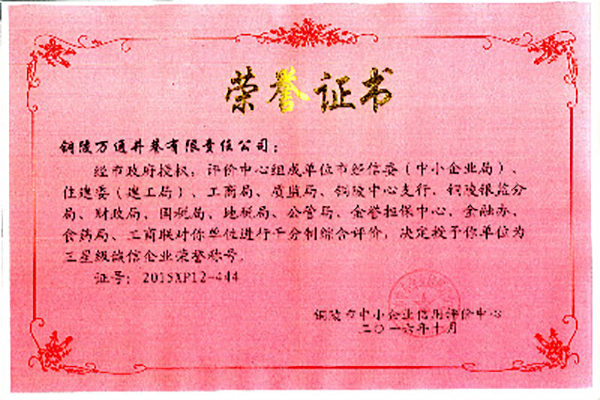 荣誉证书
铜陵万通井巷有限责任公司：
经市政府授权，评价中心组成单位市经信委（中小企业局）、
住建委（建工局）、工商局、质监局、铜陵中心支行、铜陵银监分
局、财政局、国税局、地税局、公管局、金誉担保中心、金融办、
食药局、工商联对你单位进行千分制综合评价，决定授予你单位为
三星级诚信企业荣誉称号。
证号：2015XP12-444
铜陵市中小企业信用评价中心
二〇一六年十月